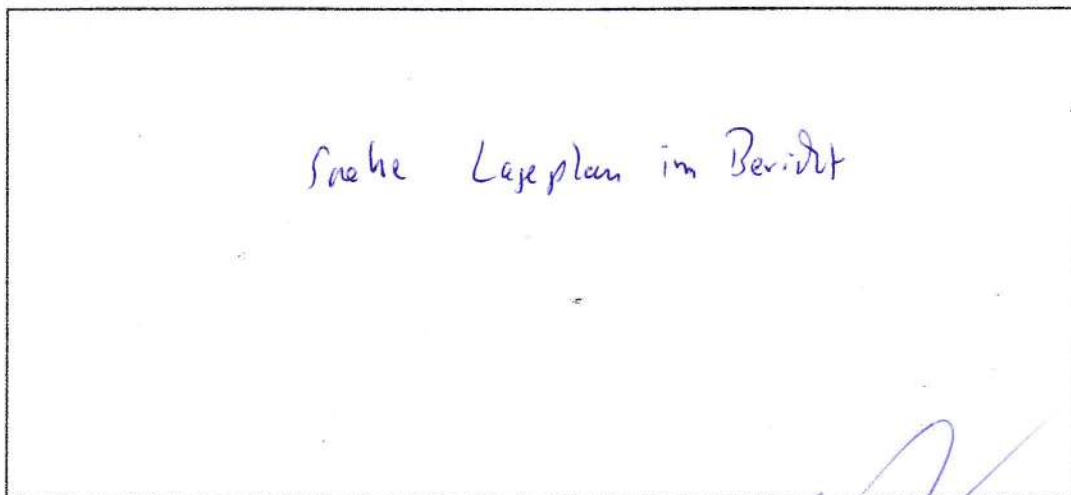 Siehe Lageplan im Bericht